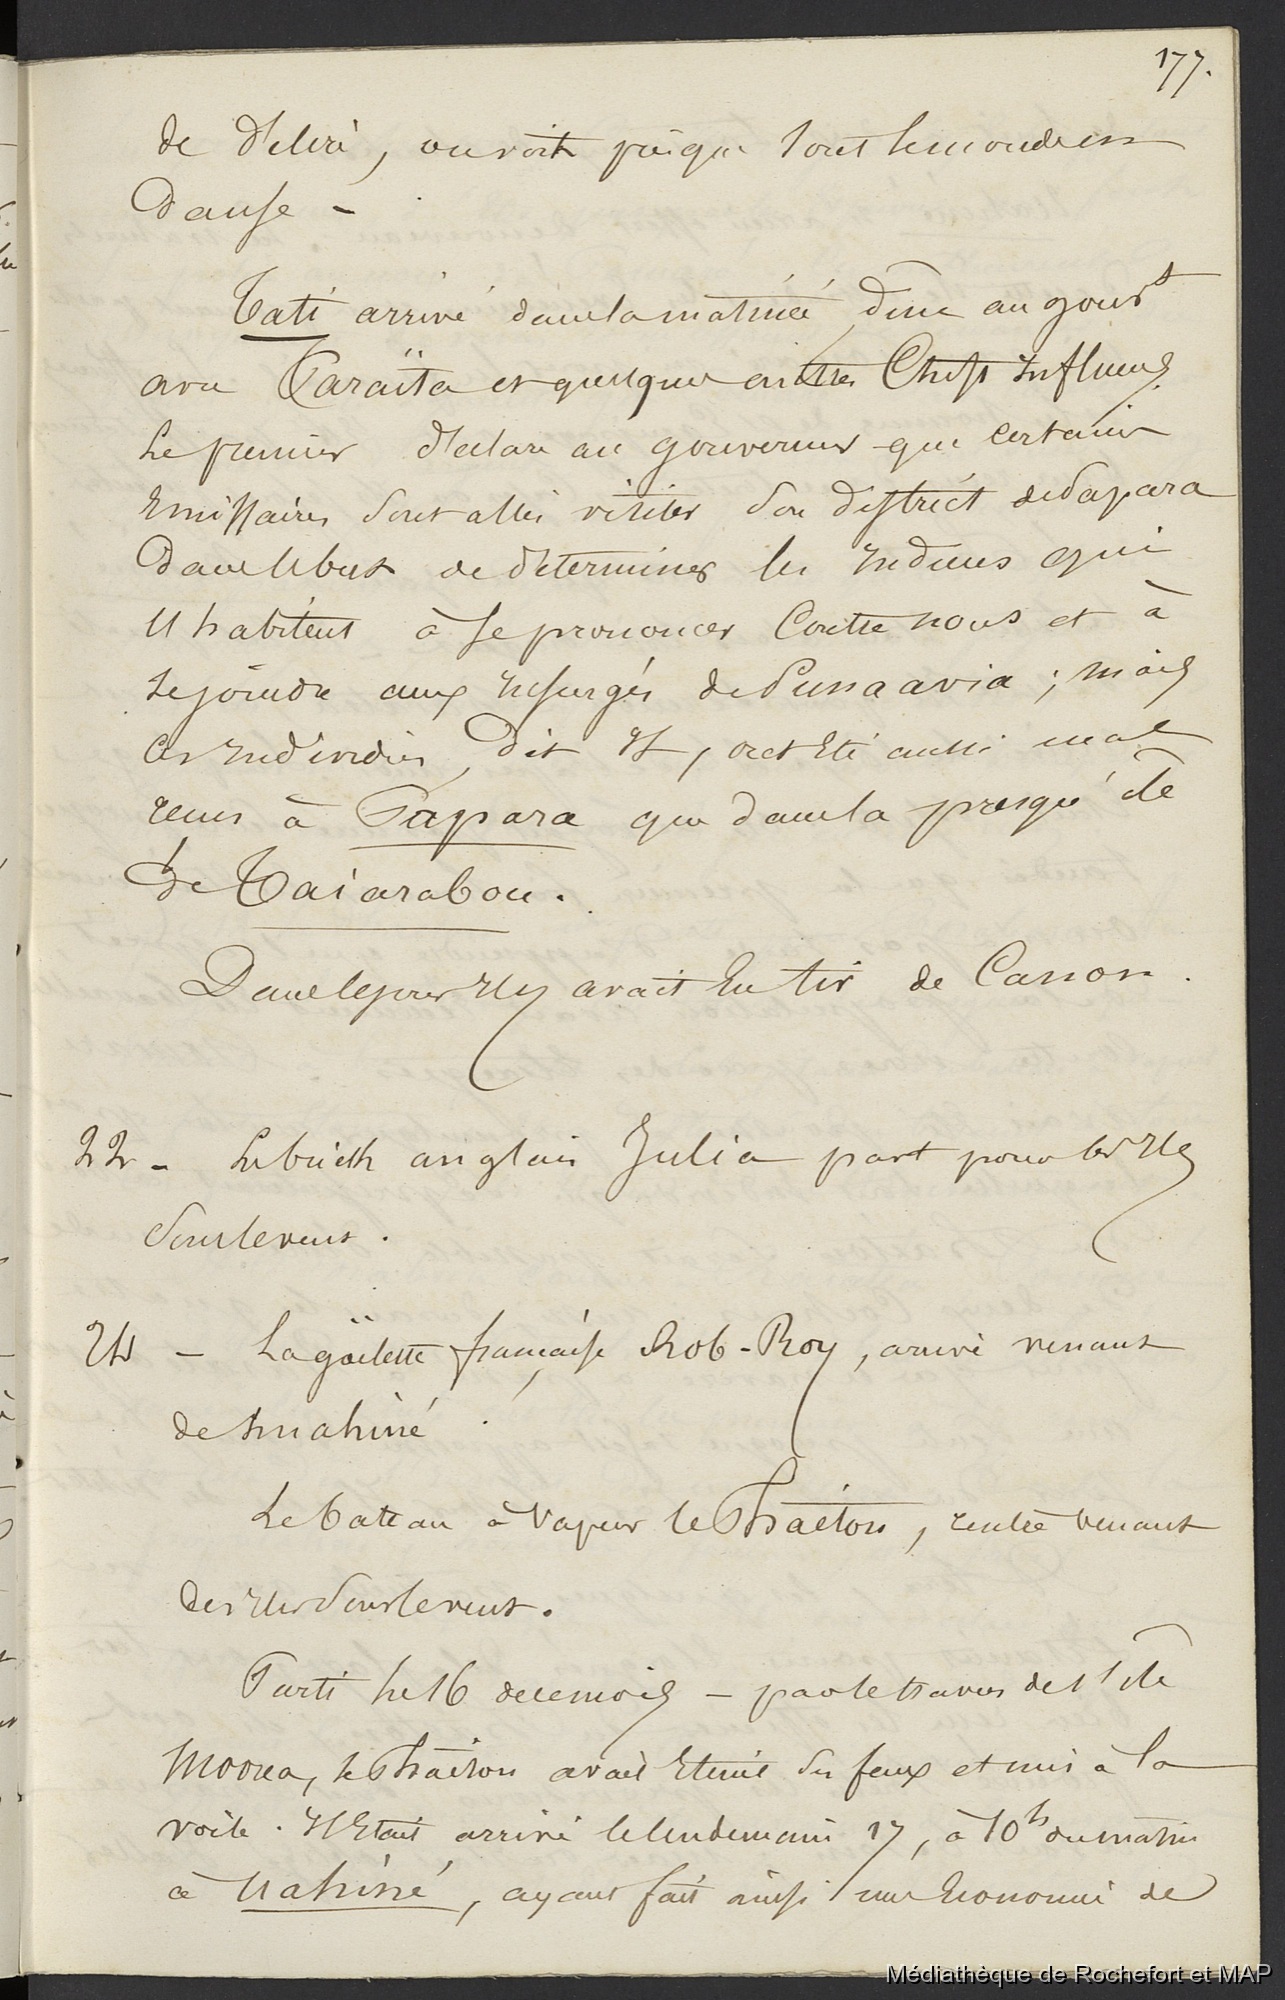 177.
de délire, on voit presque tout le monde en
danse -
Tati arrivé dans la matinée, dîne au gouvt
avec Taraïta et quelques autres Chefs influens.
Le premier déclare au gouverneur que certains
émissaires sont allés visiter son district de Papara
dans le but de déterminer les indiens qui
l'habitent à se prononcer contre nous et à
se joindre aux insurgés de Punaavia ; mais
ces individus, dit il, ont été aussi mal
reçus à Papara que dans la presqu'île
de Taiarabou.
Dans le jour il y avait eu tir de Canon.
22 - Le brick anglais Julia part pour les iles
sous le vent.
24 - La goëlette française Rob-Roy, arrivé venant
de huahiné
Le bateau à vapeur le Phaéton, rentré venant
des iles sous le vent.
Parti le 16 de ce mois - par le travers de l'ile
Moorea, le Phaéton avait éteint ses feux et mis à la
voile. Il était arrivé le lendemain 17, à 10h du matin
à Uahiné, ayant fait ainsi une économie de
Médiathèque de Rochefort et MAP